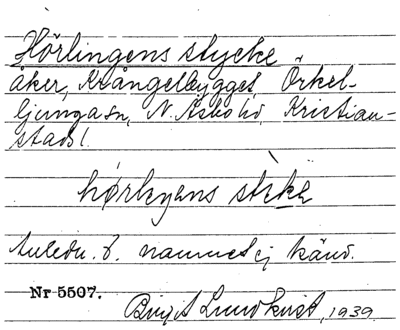 Hörlingens stycke
åker, Krångelbygget, Örkel-
ljungasn, N. Åsbo hd, Kristian-
stads l.
hørlıŋens stɛkə
Anledn. t. namnet ej känd.
Nr 5507.
Birgit Lundkvist, 1939